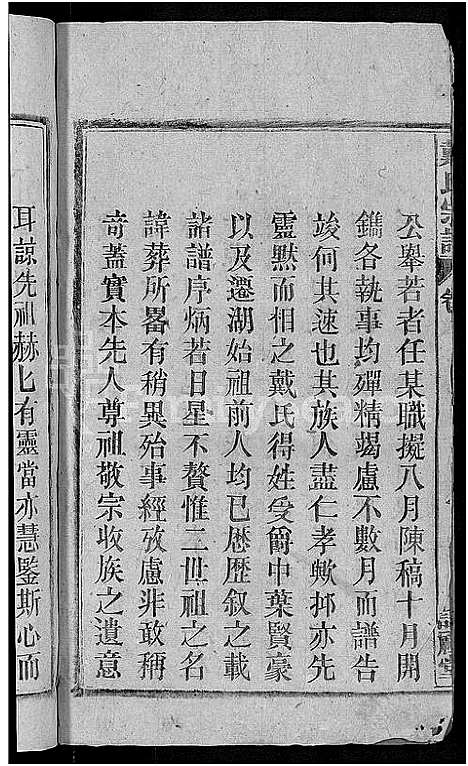 公舉若者任某職擬八月陳稿十月開
鐫各執事均殫精竭慮不數月而譜告
竣何其速也其族人盡仁孝歟抑亦先
靈默而相之戴氏得姓受爵中葉賢豪
以及遷湖始祖前人均已歷歷叙之載
諸譜序炳若日星不贅惟三世祖之名
諱葬所畧有稍異殆事經攷慮非敢稱
竒葢實本先人尊祖敬宗收族之遺意
耳諒先祖赫匕有靈當亦慧鑒斯心而